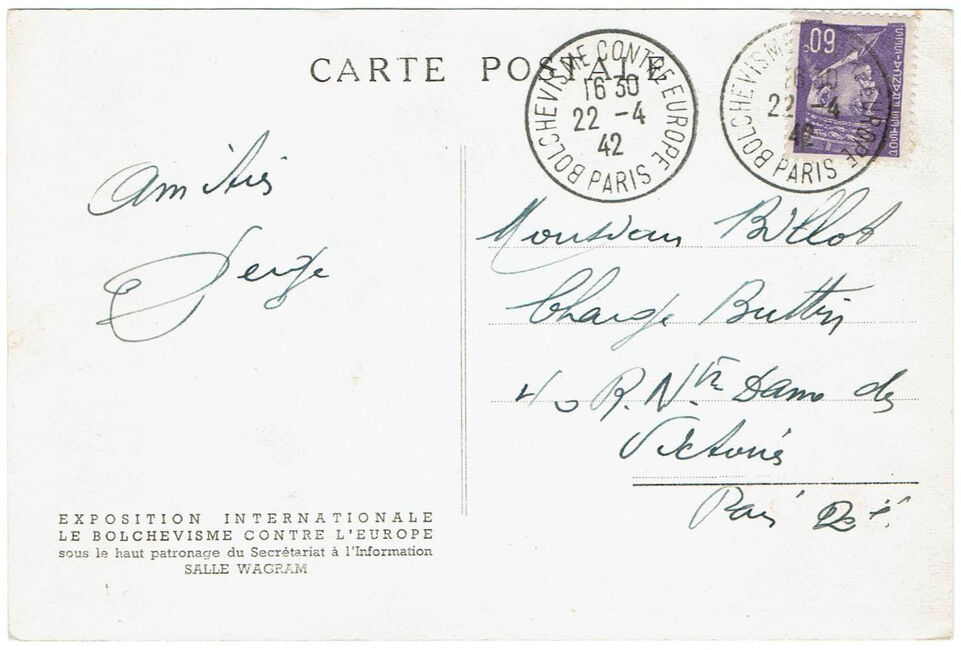 CARTE POSTALE
BOLCHEVISME CONTRE EUROPE
16 30
22 - 4
42
PARIS
BOLCHEVISME EUROPE
16 30
22 - 4
42
PARIS
60
Amitiés
Serge
Monsieur Billot
Change
40 R. Ntre Dame des
Victoires
Paris 2e
EXPOSITION INTERNATIONALE
LE BOLCHEVISME CONTRE L'EUROPE
sous le haut patronage du Secrétariat à l'Information
SALLE WAGRAM